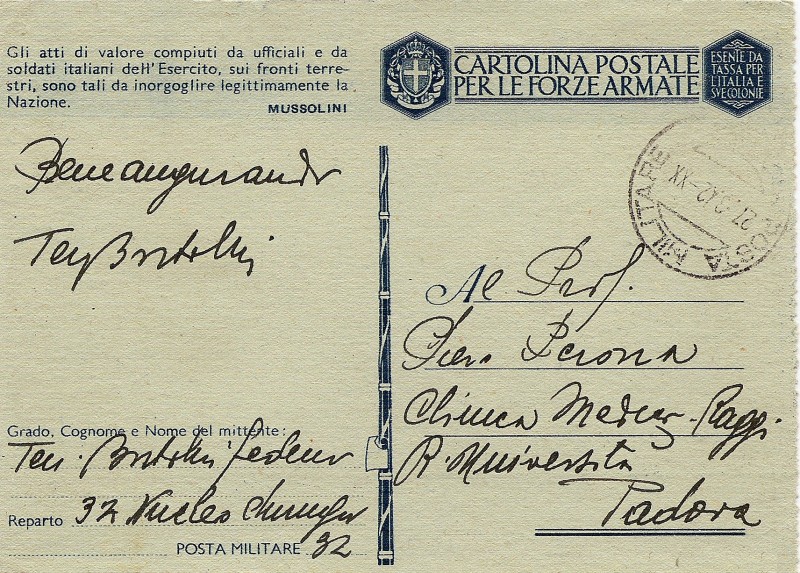 Gli atti di valore compiuti da ufficiali e da
soldati italiani dell'Esercito, sui fronti terre-
stri, sono tali da inorgoglire legittimamente la
Nazione.
MUSSOLINI
CARTOLINA POSTALE
PER LE FORZE ARMATE
ESENTE DA
TASSA PER
L'ITALIA E
SVE COLONIE
POSTA MILITARE
42-XX
Beneaugurando
Ten
Al Prof.
Piero Perona
Clinica Medica - Raggi
R. Università
Padova
Grado, Cognome e Nome del mittente:
Ten.
Reparto 32 Nucleo
POSTA MILITARE 32